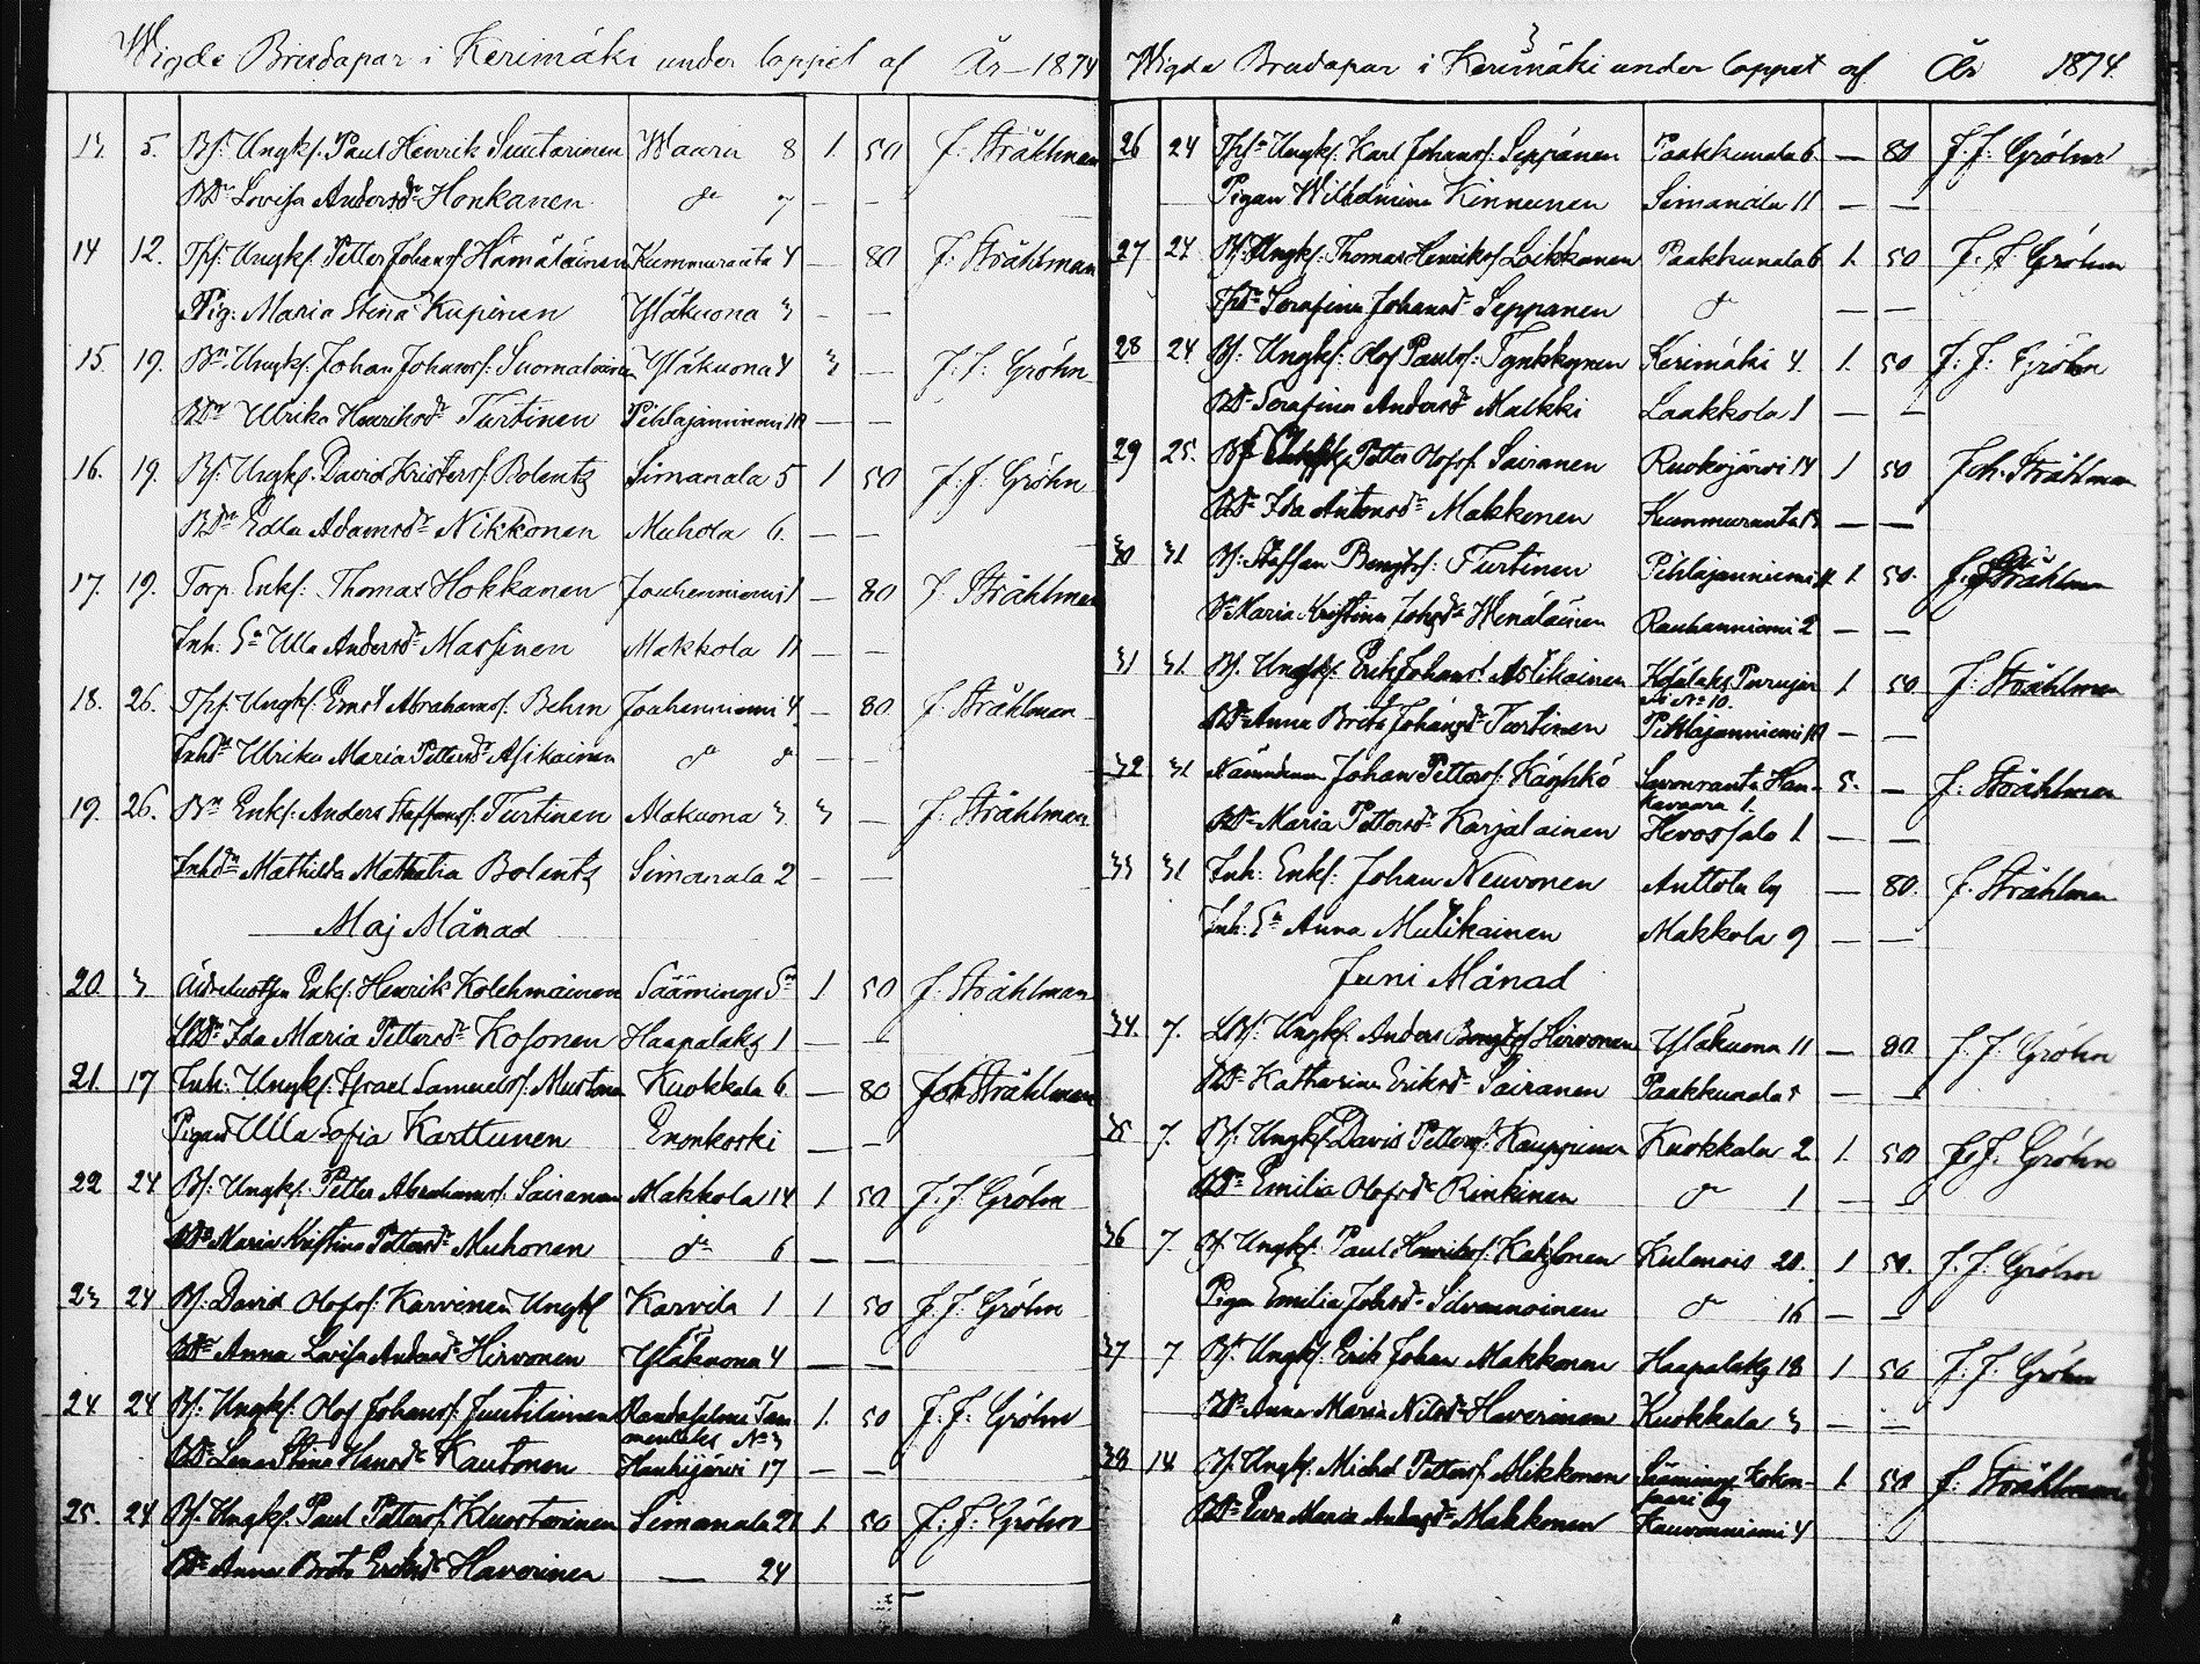 Wigde Brudapar i Kerimäki under loppet af År 1874
13. 5. Bs. Ungk. Paul Henrik Suutarinen Waara 8 1. 50 J. Stråhlman
BDr Lovisa Andersdr Honkanen do 7 — —
14 12. Ths. Ungk. Petter Johanss. Hämäläinen Kummuranta 4 — 80 J. Stråhlman
Pig. Maria Stina Kupinen Yläkuona 3 — —
15. 19. Bn. Ungk. Johan Johanss. Suomalainen Yläkuona 4 3 — J. F. Gröhn
BDr Ulrika Henriksdr Turtinen Pihlajanniemi 10 — —
16. 19. Bs. Ungk. David Kristers. Bolentz Simanala 5 1 50 J. F. Gröhn
BDr Edla Adamsdr Nikkonen Muhola 6. — —
17. 19. Torp. Enk. Thomas Hokkanen Jouhenniemi 1 — 80 J. Stråhlman
Inh. Ea Ulla Andersdr Massinen Makkola 11 — —
18. 26. Ths. Ungk. Ernst Abrahams. Behm Jouhenniemi 4 — 80 J. Stråhlman
Inhdr Ulrika Maria Pettersdr Asikainen do do — —
19. 26. Bn Enk. Anders Staffans. Turtinen Makuona 3. 3 — J. Stråhlman
Inhdr Mathilda Mathalia Bolentz Simanala 2 — —
Maj Månad
20. 3 Enk. Henrik Kolehmainen Sääminge Sn 1 50 J. Stråhlman
LBDr Ida Maria Pettersdr Kosonen Haapalaks 1 — —
21. 17 Inh. Ungk. Israel Samuels. Mustonen Kuokkala 6. — 80 Joh Stråhlman
Pigan Ulla Sofia Karttunen Enonkoski — —
22 24 Bs. Ungk. Petter Abrahams. Sairanen Makkola 14 1 50 J. F. Gröhn
BDr Maria Kristina Pettersdr Muhonen do 6 — —
23 24 Bs. David Olofs. Karvinen Ungk Karvila 1 1 50 J. F. Gröhn
BDr Anna Lovisa Andersdr Hirvonen Yläkuona 4 — —
24. 24 Bs. Ungk. Olof Johanss. Juutilainen Randasalmi Tam 1. 50 J. F. Gröhn
menlaks No 3
BDr Lena Stina Hansdr Kautonen Hanhijärvi 17 — —
25. 24 Bs. Ungk. Paul Petters. Kluostarinen Simanala 21 1. 50 J. F. Gröhn
BDr Anna Brita Eriksdr Haverinen — 24 —
Wigde Brudapar i Kerimäki under loppet af År 1874.
26 24 Ths. Ungk. Karl Johans. Seppänen Paakkunala 6. — 80 J. F. Gröhn
Pigan Wilhelmina Kinnunen Simanala 11 — —
27 24 Bs. Ungk. Thomas Henriks. Loikkanen Paakkunala 6 1. 50 J. F. Gröhn
Thdr Serafina Johansdr Seppanen do — —
28 24 Bs. Ungk. Olof Pauls. Tynkkynen Kerimäki 4. 1. 50 J. F. Gröhn
BDr Serafina Andersdr Malkki Laakkola 1 — —
29 25. Bs Petter Olofs. Sairanen Ruokojärvi 14 1 50 Joh. Stråhlman
BDr Ida Antonsdr Makkonen Kummuranta 13 — —
30 31 Bs. Staffan Bengts. Turtinen Pihlajanniemi 11 1. 50. J. Stråhlman
Dr Maria Kristina Johsdr Wenäläinen Rauhanniemi 2 — —
31 31. Bs. Ungk. Erik Johans. Astikainen 1 50 J. Stråhlman
No 10.
BDr Anna Brita Johansdr Turtinen Pihlajanniemi 10 — —
32 31 Nämndeman Johan Petters. Käyhkö Savonranta Han- 5. — J. Stråhlman
kavaara 1.
BDr Maria Pettersdr Karjalainen Hevossalo 1 — —
33 31 Inh. Enk. Johan Neuvonen Anttola by — 80. J. Stråhlman
Inh. Ea Anna Mulikainen Makkola 9 — —
Juni Månad
34. 7. LBs. Ungk. Anders Bengts. Hirvonen Yläkuona 11 — 80 J. F. Gröhn
BDr Katharina Eriksdr Sairanen Paakkunala 5 — —
35 7. Bs. Ungk. David Petters. Kauppinen Kuokkala 2. 1. 50 J. F. Gröhn
BDr Emilia Olofsdr Rinkinen do 1 — —
36 7. Bs. Ungk. Paul Henriks. Kakkonen Kulenois 20. 1 50. J. F. Gröhn
Pigan Emilia Johsdr Silvennoinen do 16 — —
37 7 Bs. Ungk. Erik Johan Makkonen Haapalaks 18 1 50 J. F. Gröhn
BDr Anna Maria Nilsdr Haverinen Kuokkala 3 — —
38 14. Bs. Ungk. Michel Petters. Mikkonen Sääminge Kokon- 1. 50 J. Stråhlman
saari by
BDr Ewa Maria Andersdr Makkonen Kauvonniemi 4